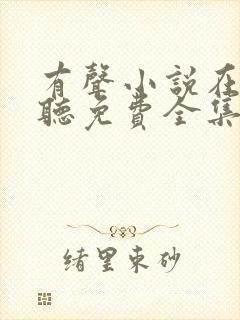 有聲小説在
聽免費全集
緒里束砂